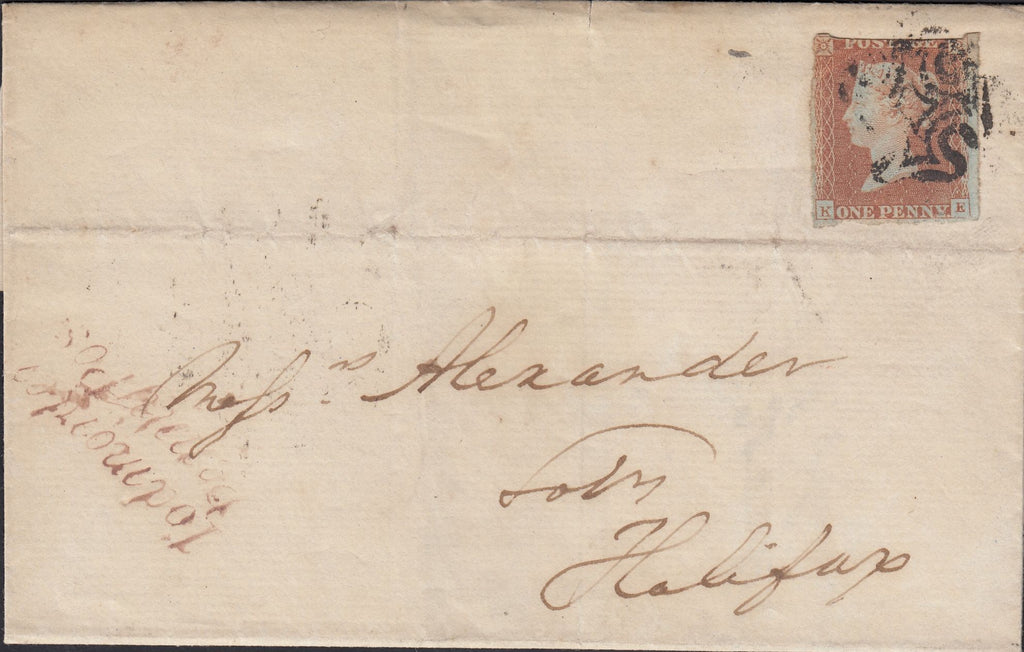 POSTAGE
K ONE PENNY E
Messrs Alexander
Solrs
Halifax
Todmorden
Penny Post